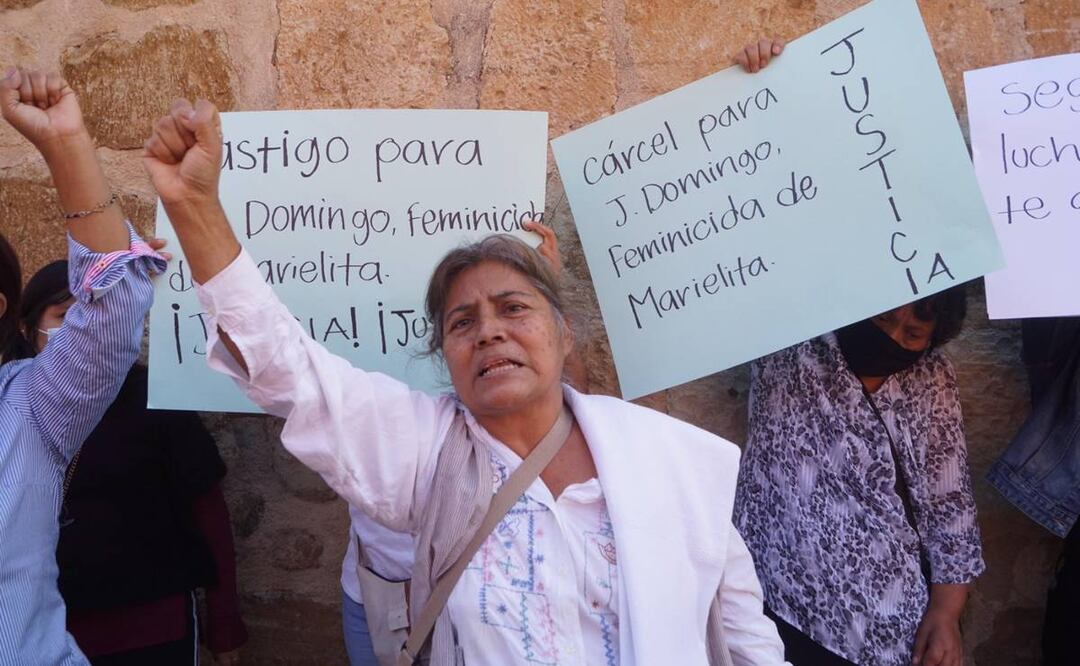 astigo para
Domingo, Feminicid
arielita.
¡J CIA! ¡Ju
cárcel para
J. Domingo,
Feminicida de
Marielita.
JUSTICIA
seg
luch
te